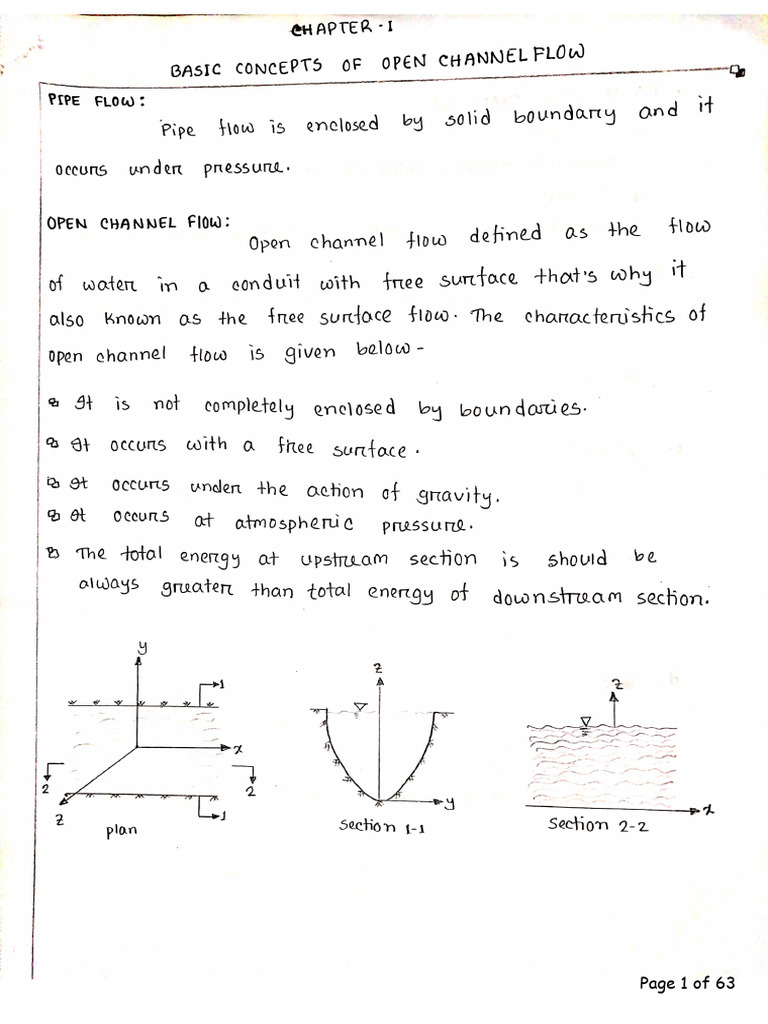 CHAPTER-I
BASIC CONCEPTS OF OPEN CHANNEL FLOW
PIPE FLOW:
Pipe flow is enclosed by solid boundary and it
occurs under pressure.
OPEN CHANNEL FLOW:
Open channel flow defined as the flow
of water in a conduit with free surface that's why it
also known as the free surface flow. The characteristics of
open channel flow is given below-
It is not completely enclosed by boundaries.
It occurs with a free surface.
It occurs under the action of gravity.
It occurs at atmospheric pressure.
The total energy at upstream section is should be
always greater than total energy of downstream section.
y
1
x
2
2
z
1
plan
z
y
Section 1-1
z
x
Section 2-2
Page 1 of 63